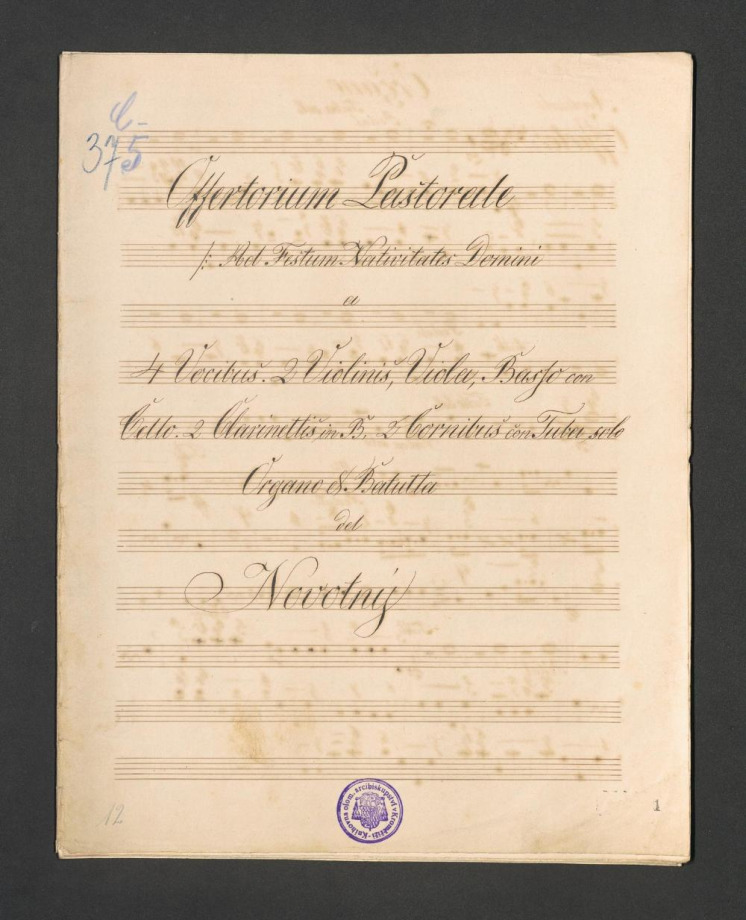 C-
375
Offertorium Pastorale
/: Ad Festum Nativitatis Domini
a
4 Vocibus. 2 Violinis, Viola, Basso con
Cello. 2 Clarinettis in B. 2 Cornibus con Tuba solo
Organo & Batutta
del
Novotný
Knihovna olom. arcibiskupství v Kroměříži
12
1